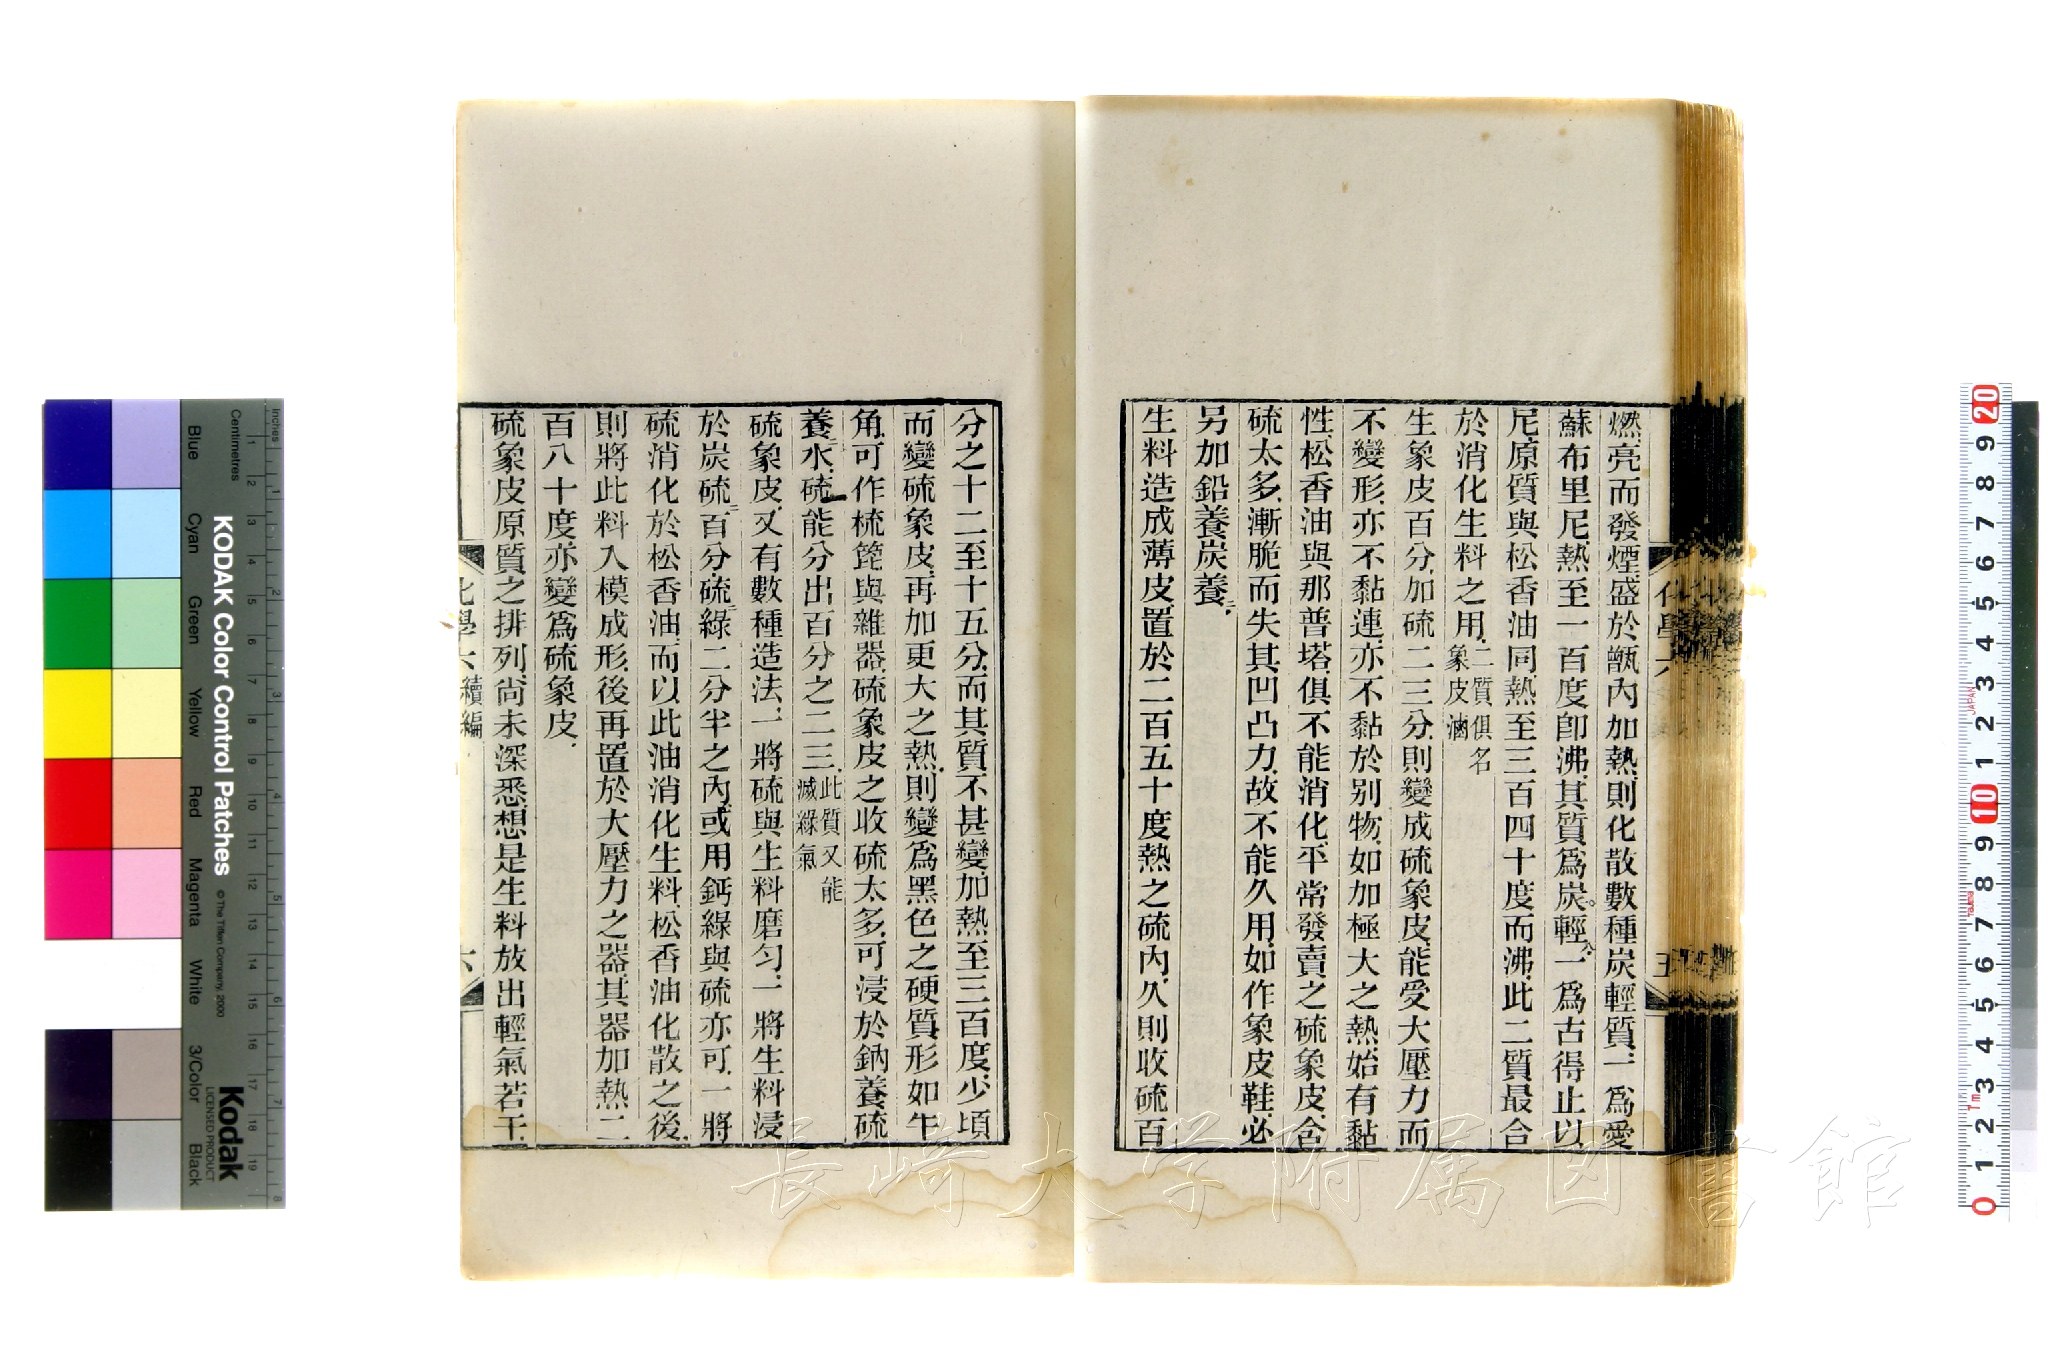 燃亮而發煙盛於甑內加熱則化散數種炭輕質一爲愛
蘇布里尼熱至一百度卽沸其質爲炭輕一爲古得止以
尼原質與松香油同熱至三百四十度而沸此二質最合
於消化生料之用二質俱名象皮滷
生象皮百分加硫二三分則變成硫象皮能受大壓力而
不變形亦不黏連亦不黏於別物如加極大之熱始有黏
性松香油與那普塔俱不能消化平常發賣之硫象皮含
硫太多漸脆而失其凹凸力故不能久用如作象皮鞋必
另加鉛養炭養二
生料造成薄皮置於二百五十度熱之硫內久則收硫百
分之十二至十五分而其質不甚變加熱至三百度少頃
而變硫象皮再加更大之熱則變爲黑色之硬質形如牛
角可作梳篦與雜器硫象皮之收硫太多可浸於鈉養硫
養二水硫能分出百分之二三此質又能滅綠氣
硫象皮又有數種造法一將硫與生料磨勻一將生料浸
於炭硫二百分硫綠二分半之內或用鈣綠與硫亦可一將
硫消化於松香油而以此油消化生料松香油化散之後
則將此料入模成形後再置於大壓力之器其器加熱二
百八十度亦變爲硫象皮
硫象皮原質之排列尚未深悉想是生料放出輕氣若干
化學六 續編
六
化學六
五
長崎大学附属図書館
KODAK Color Control Patches
© The Tiffen Company, 2000
Kodak
LICENSED PRODUCT
Inches
Centimetres
Blue
Cyan
Green
Yellow
Red
Magenta
White
3/Color
Black